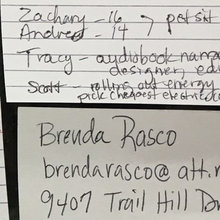 Zachary - 16 > pet sit
Andrea - 14
Tracy - audiobook narra
designer, ed
Scott - rolling out energy
pick cheapest electric
Brenda Rasco
brendarasco@att.n
9407 Trail Hill D